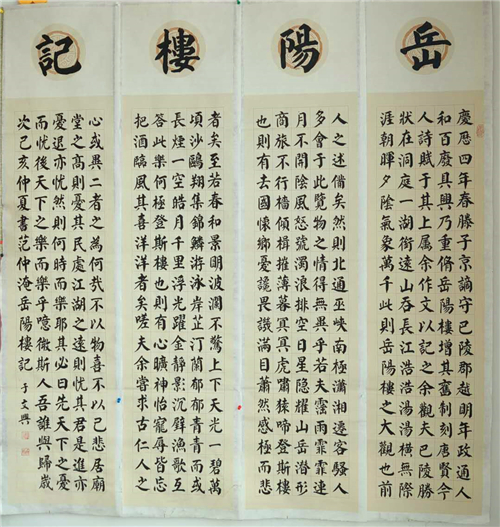 岳
慶厯四年春滕子京謫守巴陵郡越明年政通人
和百廢具興乃重脩岳陽樓增其舊制刻唐賢今
人詩賦于其上属余作文以記之余觀夫巴陵勝
狀在洞庭一湖銜遠山吞長江浩浩湯湯橫無際
涯朝暉夕陰氣象萬千此則岳陽樓之大觀也前
陽
人之述備矣然則北通巫峽南極瀟湘遷客騷人
多會于此覽物之情得無異乎若夫霪雨霏霏連
月不開陰風怒號濁浪排空日星隱耀山岳潛形
商旅不行檣傾楫摧薄暮冥冥虎嘯猿啼登斯樓
也則有去國懷鄉憂讒畏譏滿目蕭然感極而悲
樓
者矣至若春和景明波瀾不驚上下天光一碧萬
頃沙鷗翔集錦鱗游泳岸芷汀蘭郁郁青青而或
長煙一空皓月千里浮光躍金靜影沉璧漁歌互
答此樂何極登斯樓也則有心曠神怡寵辱皆忘
把酒臨風其喜洋洋者矣嗟夫余嘗求古仁人之
記
心或異二者之為何哉不以物喜不以己悲居廟
堂之高則憂其民處江湖之遠則憂其君是進亦
憂退亦憂然則何時而樂耶其必曰先天下之憂
而憂後天下之樂而樂乎噫微斯人吾誰與歸歲
次己亥仲夏書范仲淹岳陽樓記 于文興